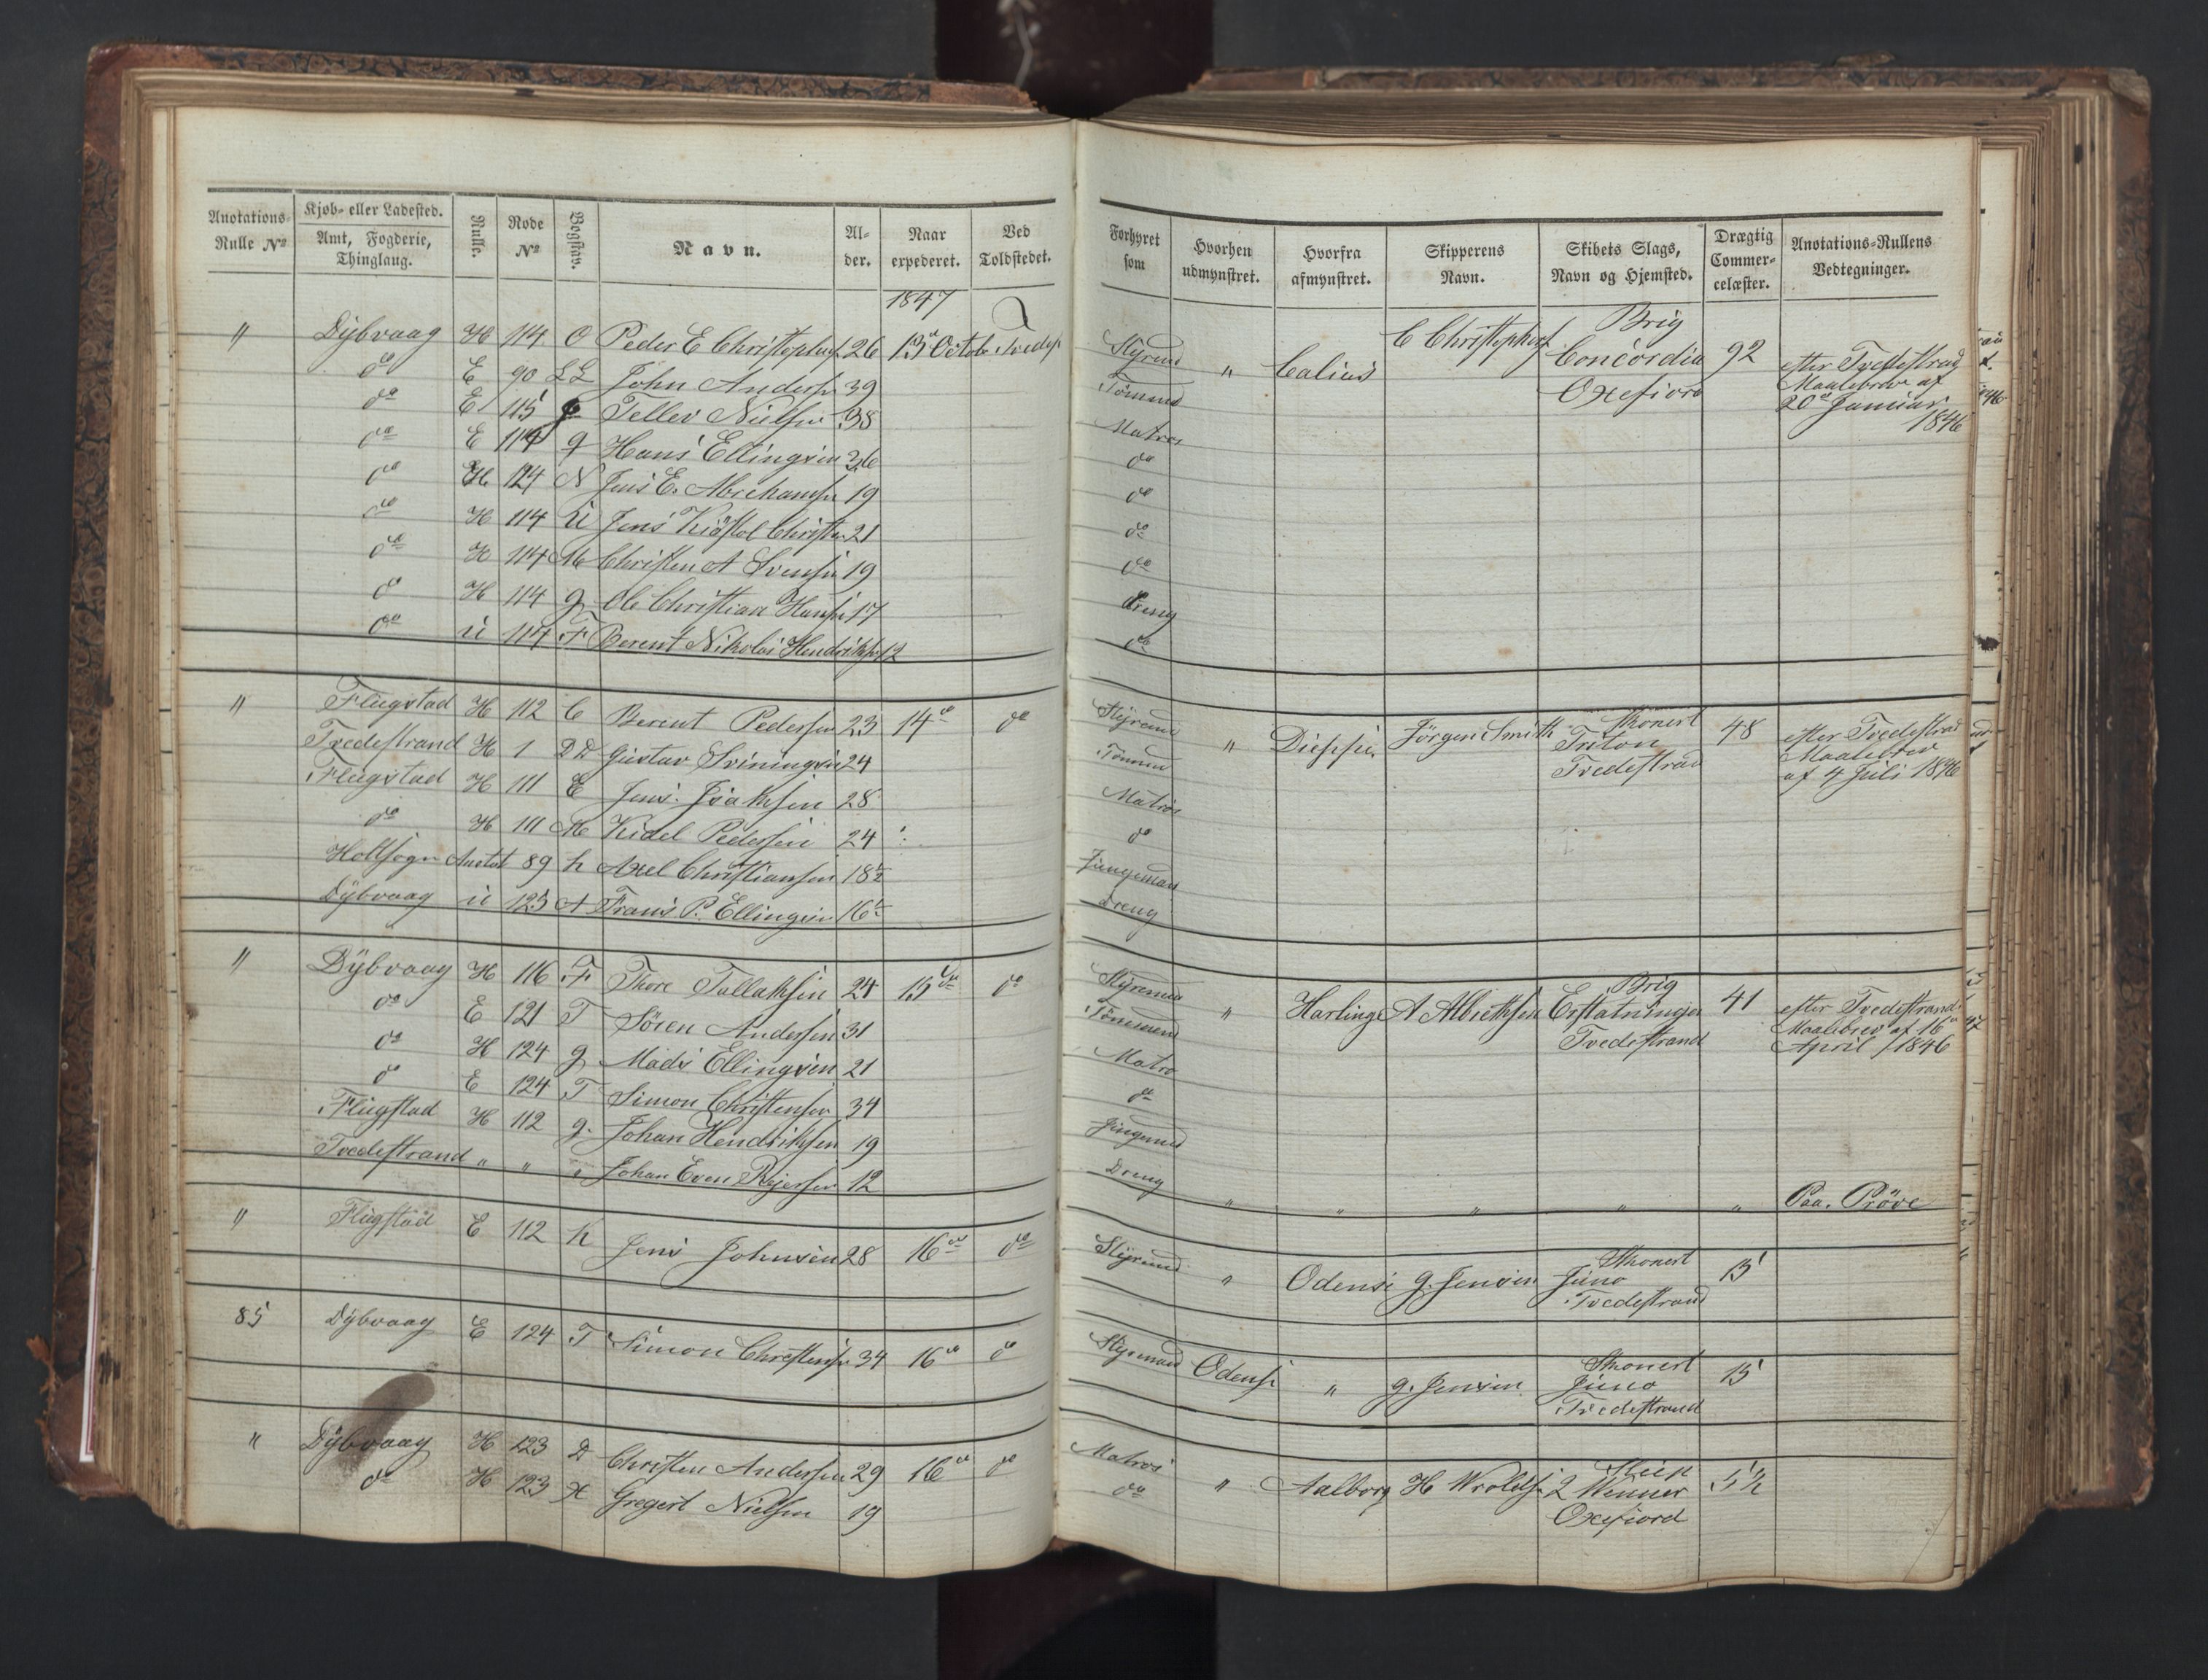 Anotations- Rulle №
Kjøb- eller Ladested.
Amt, Fogderie, Thinglaug.
Rulle.
Node №
Bogstav.
Navn.
Al- der.
Naar expederet.
Ved Toldstedet.
1847
" Dÿbvaag H 114 O Peder E Christophers 26 13de Octobr Tvedest
do E 90 LL John Anders 39
do E 115 Tellev Nielsen 38
do E 114 g Hans Ellingsen 36
do H 124 N Jens E. Abrehams 19
do H 114 U Jens Kiøstol Christen 21
do H 114 M Christen A Svensen 19
do H 114 g Ole Christian Hansen 17
do U 114 F Berent Nikolai Hendriksen 12
" Flugstad H 112 C Berent Pedersen 23 14de do
Tvedestrand H 1 DD Gustav Sveningsen 24
Flugstad H 111 E Jens Isaksen 28
do H 111 M Kidel Pedersen 24
Holtsogn Anotat 89 h Axel Christiansen 18½
Dÿbvaag U 123 A Frans P. Ellingsen 16½
" Dÿbvaag H 116 F Thore Tallaksen 24 15de do
do E 121 T Sören Andersen 31
do H 124 g Mads Ellingsen 21
do E 124 T Simon Christensen 34
Flugstad H 112 g. Johan Hendriksen 19
Tvedestrand " " " Johan Even Rejersen 12
" Flugstad E 112 K Jens Johnsen 28 16de do
85 Dÿbvaag E 124 T Simon Christensen 34 16de do
" Dÿbvaag H 123 D Christen Andersen 29 16de do
do H 123 H Gregert Nielsen 19
Forhyret som
Hvorhen udmynstret.
Hvorfra afmynstret.
Skipperens Navn.
Skibets Slags, Navn og Hjemsted.
Drægtig Commer- celæster.
Anotations-Rullens Vedtegninger.
Stÿrmd " Calius C Christophers Brig 92 efter Tvedestrand
Tömmd Concordia Maalebrev af
Oxefiord 20de Januar
Matros 1846
do
do
do
do
Dreng
do
Stÿrmd " Dieppe Jörgen Smith Skonert 48 efter Tvedestrand
Tömmd Triton Maalebrev
Tvedestrand af 4 Juli 1846
Matros
do
Jungemand
Dreng
Stÿrmd " Harlinge A Albrethsen Brig 41 efter Tvedestrand
Tömmend Erstatningen Maalebrev af 16de
Tvedestrand April 1846
Matro
do
Jungmd
Dreng " " " " " Paa Pröve
Stÿrmd " Odense g. Jensen Skonert 15
Juno
Tvedestrand
Stÿrmand Odense " g. Jensen Skonert 15
Juno
Tvedestrand
Matros " Aalborg H Wroldsen Slup 5½
do 2 Venner
Oxefiord